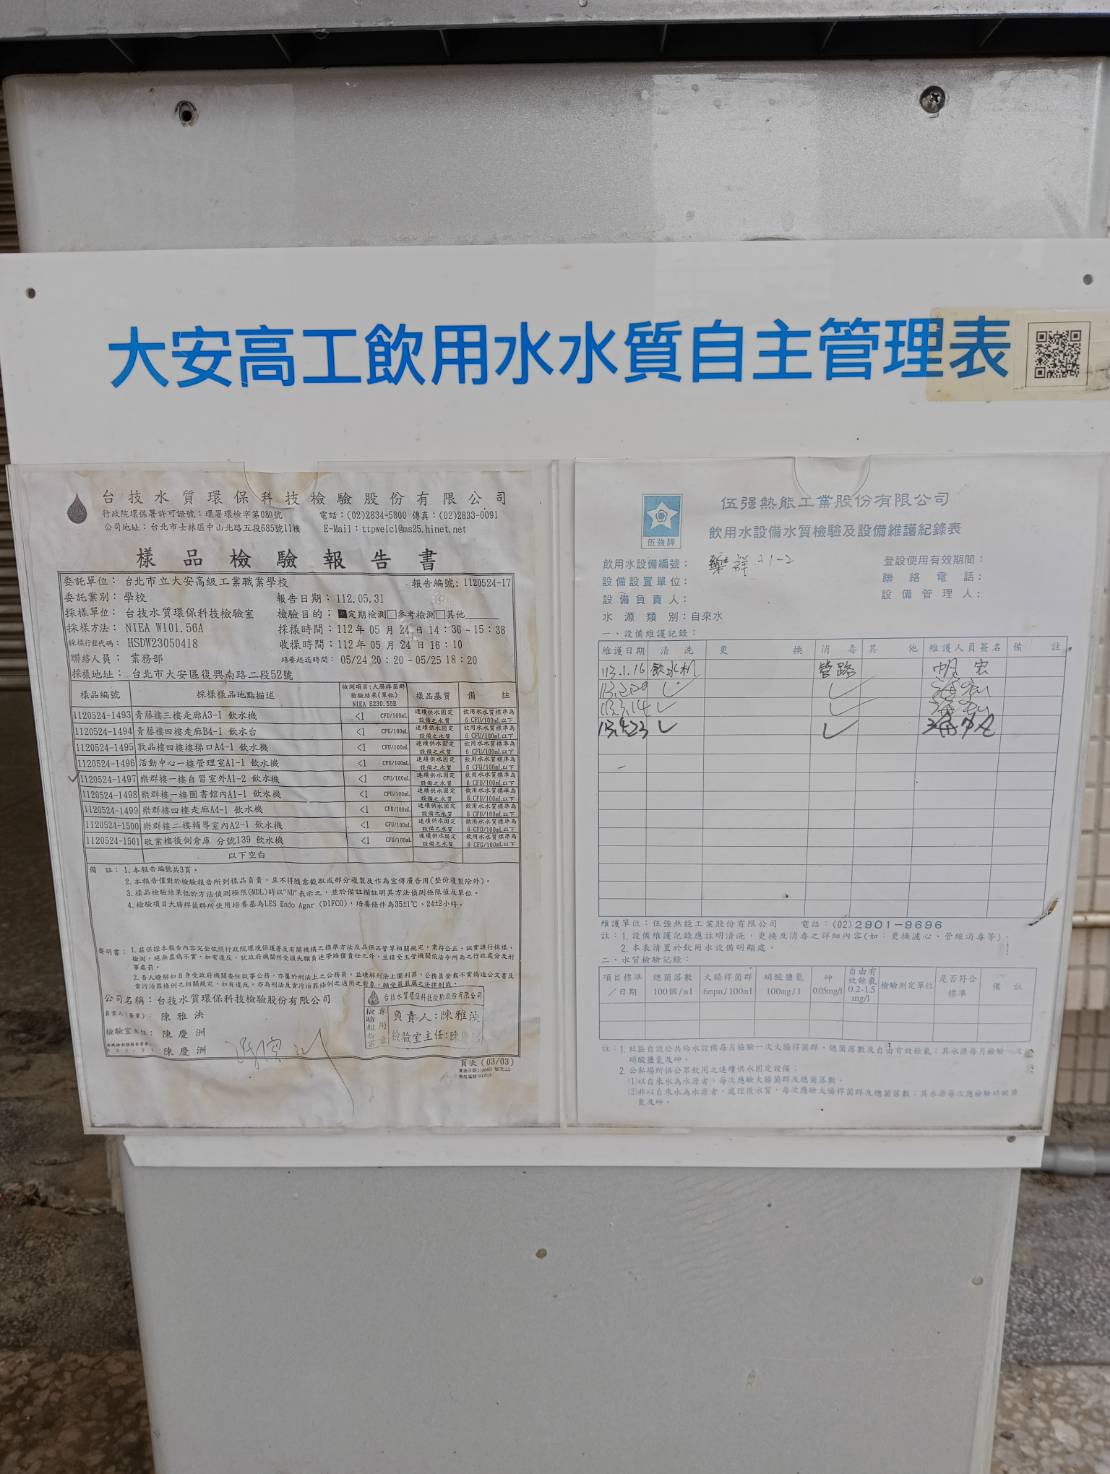 大安高工飲用水水質自主管理表
台技水質環保科技檢驗股份有限公司
行政院環保署許可證號：環署環檢字第080號 電話：(02)2834-5800 傳真：(02)2833-0091
公司地址：台北市士林區中山北路五段685號11樓 E-Mail：ttpweicl@ms25.hinet.net
樣品檢驗報告書
委託單位：台北市立大安高級工業職業學校 報告編號：1120524-17
委託業別：學校 報告日期：112.05.31
採樣單位：台技水質環保科技檢驗室 檢驗目的：■定期檢測□參考檢測□其他
採樣方法：NIEA W101.56A 採樣時間：112年05月24日14：30-15：38
採樣行程代碼：HSDW23050418 收樣時間：112年05月24日16：10
聯絡人員：業務部 培養起迄時間：05/24 20：20-05/25 18：20
採樣地址：台北市大安區復興南路二段52號
樣品編號 採樣樣品地點描述 檢測項目:大腸桿菌群 檢驗結果(單位) NIEA E230.55B 樣品基質 備註
1120524-1493 青藤樓三樓走廊A3-1 飲水機 <1 CFU/100mL 連續供水固定設備之水質 飲用水水質標準為6 CFU/100mL以下
1120524-1494 青藤樓四樓走廊B4-1 飲水台 <1 CFU/100mL 連續供水固定設備之水質 飲用水水質標準為6 CFU/100mL以下
1120524-1495 敦品樓四樓樓梯口A4-1 飲水機 <1 CFU/100mL 連續供水固定設備之水質 飲用水水質標準為6 CFU/100mL以下
1120524-1496 活動中心一樓管理室A1-1 飲水機 <1 CFU/100mL 連續供水固定設備之水質 飲用水水質標準為6 CFU/100mL以下
1120524-1497 樂群樓一樓自習室外A1-2 飲水機 <1 CFU/100mL 連續供水固定設備之水質 飲用水水質標準為6 CFU/100mL以下
1120524-1498 樂群樓一樓圖書館內A1-1 飲水機 <1 CFU/100mL 連續供水固定設備之水質 飲用水水質標準為6 CFU/100mL以下
1120524-1499 樂群樓四樓走廊A4-1 飲水機 <1 CFU/100mL 連續供水固定設備之水質 飲用水水質標準為6 CFU/100mL以下
1120524-1500 樂群樓二樓輔導室內A2-1 飲水機 <1 CFU/100mL 連續供水固定設備之水質 飲用水水質標準為6 CFU/100mL以下
1120524-1501 敬業樓後側倉庫 分號139 飲水機 <1 CFU/100mL 連續供水固定設備之水質 飲用水水質標準為6 CFU/100mL以下
以下空白
備註：1.本報告編號共3頁。
2.本報告僅對於檢驗報告所到樣品負責，且不得隨意截取或部分複製及作為宣傳廣告用(整份複製除外)。
3.樣品檢驗結果低於方法偵測極限(MDL)時以"ND"表示之，並於備註欄註明其方法偵測極限值及單位。
4.檢驗項目大腸桿菌群所使用培養基為LES Endo Agar (DIFCO)，培養條件為35±1℃、24±2小時。
聲明書：
公司名稱：台技水質環保科技檢驗股份有限公司
負責人：陳雅泱
檢驗室主任：陳慶洲
陳慶洲
台技水質環保科技檢驗股份有限公司
負責人：陳雅泱
檢驗室主任：陳
頁次(03/03)
伍強牌
伍強熱能工業股份有限公司
飲用水設備水質檢驗及設備維護紀錄表
飲用水設備編號：樂群 登設使用有效期間：
設備設置單位： 聯絡電話：
設備負責人： 設備管理人：
水源類別：自來水
一、設備維護記錄：
維護日期 清洗 更換 消毒 其他 維護人員簽名 備註
113.1.16 飲水机 管路
✓ ✓
113.3.14 ✓ ✓
113.4.23 ✓ ✓
維護單位：伍強熱能工業股份有限公司 電話：(02)2901-9696
註：1.設備維護記錄應註明清洗、更換及消毒之詳細內容(如：更換濾心、管線消毒等)。
2.本表請置於飲用水設備明顯處。
二、水質檢驗記錄：
項目標準/日期 總菌落數100個/ml 大腸桿菌群6mpn/100ml 硝酸鹽氮10Omg/l 砷0.05mg/l 自由有效餘氯0.2-1.5mg/l 檢驗測定單位 是否符合標準 備註
註：1.社區自設公共給水設備每月檢驗一次大腸桿菌群、總菌落數及自由有效餘氯；其水源每月檢驗一次硝酸鹽氮及砷。
2.公私場所供公眾飲用之連續供水固定設備：
(1)以自來水為水源者，每次應驗大腸桿菌群及總菌落數。
(2)非以自來水為水源者，處理後水質，每次應驗大腸桿菌群及總菌落數；其水源每次應檢驗硝酸鹽氮及砷。